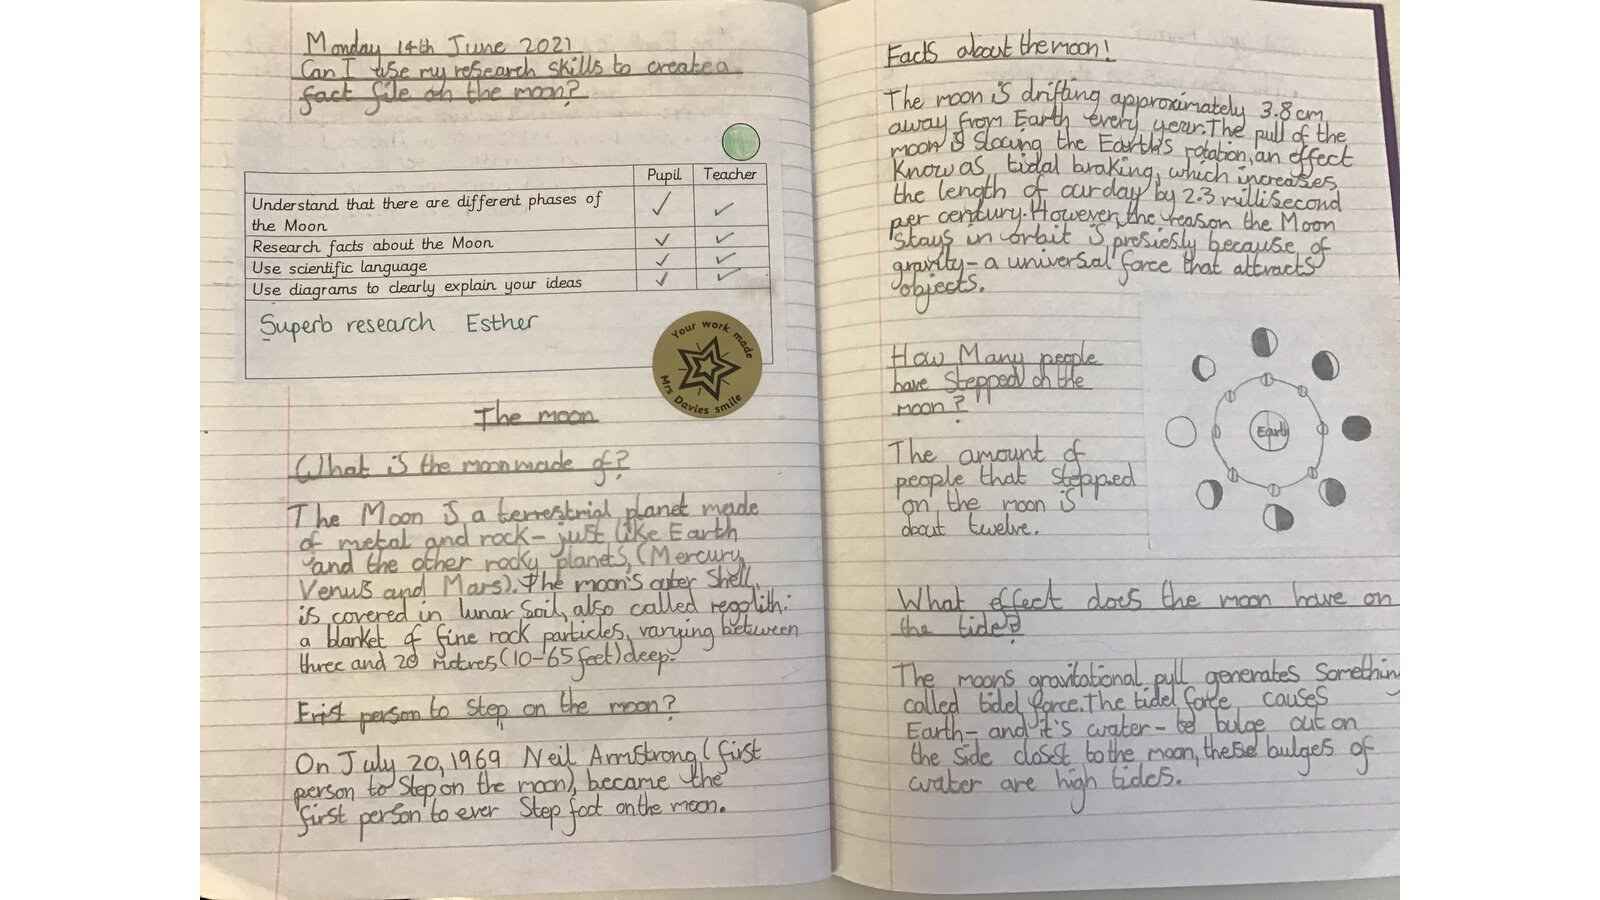 Monday 14th June 2021
Can I use my research skills to create a
fact file on the moon?
Pupil Teacher
Understand that there are different phases of
the Moon
Research facts about the Moon
Use scientific language
Use diagrams to clearly explain your ideas
Superb research Esther
Your work made
Mrs Davies smile
The moon
What is the moon made of?
The Moon is a terrestrial planet made
of metal and rock- just like Earth
and the other rocky planets, (Mercury,
Venus and Mars). The moon's outer shell,
is covered in lunar soil, also called regolith:
a blanket of fine rock particles, varying between
three and 20 metres (10-65 feet) deep.
Frist person to step on the moon?
On July 20, 1969 Neil Armstrong (first
person to step on the moon), became the
first person to ever step foot on the moon.
Facts about the moon!
The moon is drifting approximately 3.8cm
away from Earth every year. The pull of the
moon is slowing the Earth's rotation, an effect
Know as tidal braking, which increases
the length of our day by 2.3 millisecond
per century. However, the reason the Moon
stays in orbit is presiesly because of
gravity- a universal force that attracts
objects.
How Many people
have stepped on the
moon?
Earth
The amount of
people that stepped
on the moon is
about twelve.
What effect does the moon have on
the tide?
The moons gravitational pull generates something
called tidel force. The tidel force causes
Earth- and it's water- to bulge out on
the side closet to the moon, these bulges of
water are high tides.